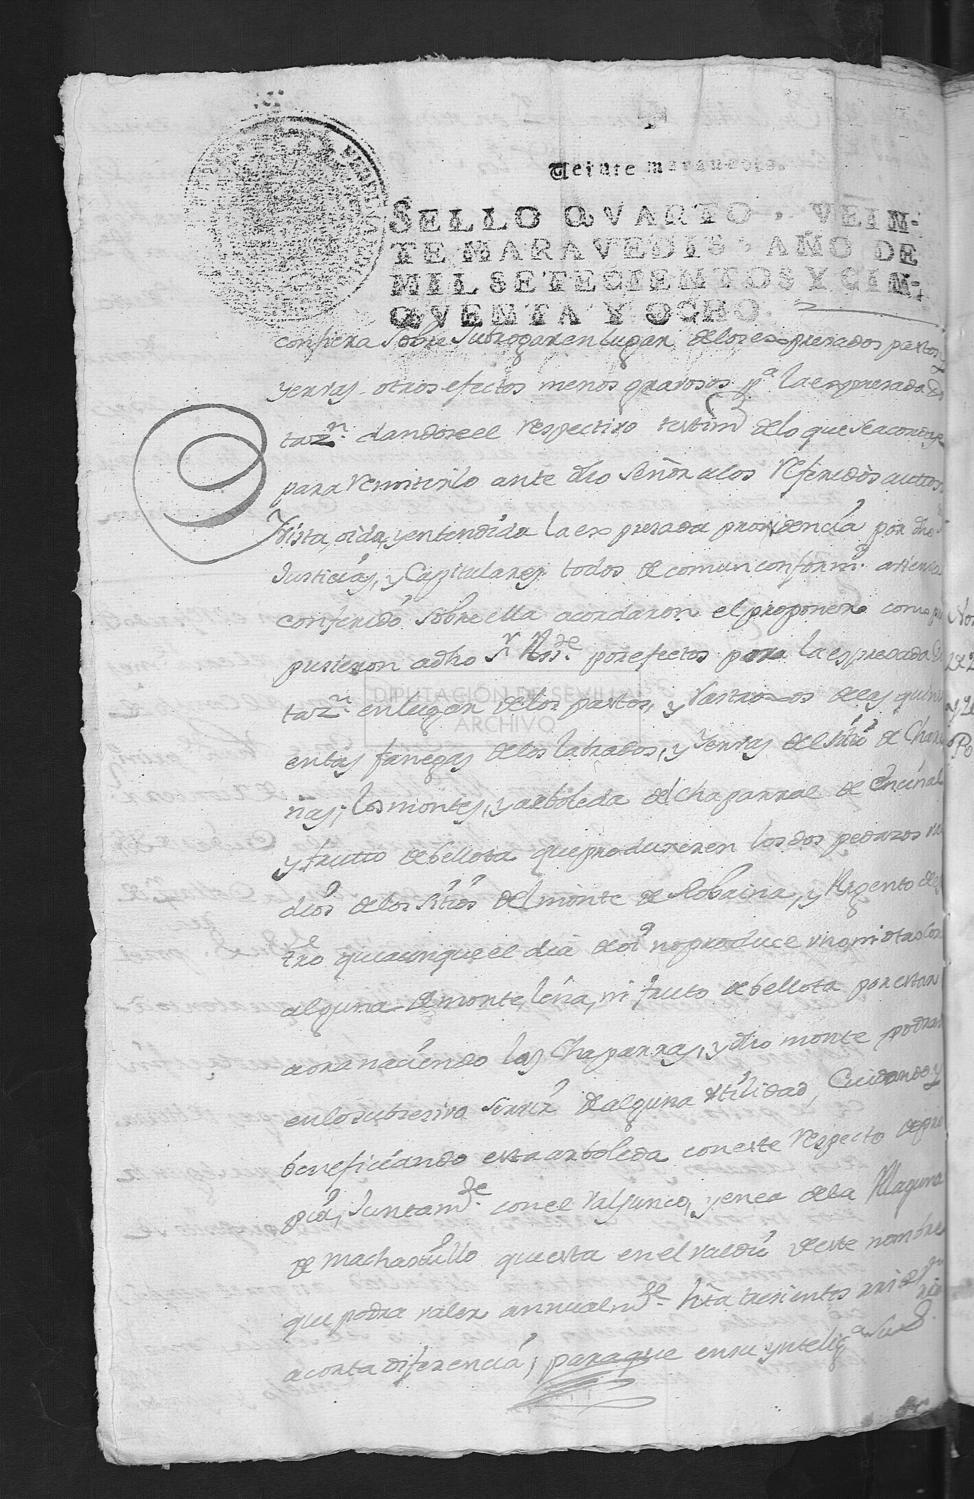 Veinte maravedis.
SELLO QVARTO, VEIN-
TE MARAVEDIS, AÑO DE
MIL SETECIENTOS Y CIN-
QVENTA Y OCHO.
confiera sobre subrogar en lugar de los expresados pastos y
yervas otros efectos menos gravosos pª la expresada do
tazn. dandose el respectivo testimº de lo que se acordase
para remitirlo ante dho Señor a los referidos auttos
Vista, oida, y entendida la expresada providencia por dhos
Justicia, y Capitulares todos de comun conformd. aviendo
conferido sobre ella acordaron el proponer como pro
pusieron a dho Sr por efectos para la expresada Do
tazn. en lugar de los pastos, y rastrojos de las quini
entas fanegas de los labrados, y yervas del sitio de
ñas; los montes, y arboleda del chaparral de encinal
y frutto de bellota que produxeren los dos pedazos
dios de los sitios del monte de Robaina, y
tro que aunque el dia de oi no produce uno ni otro cosa
alguna de monte leña, ni fruto de bellota por estar
aora naciendo las Chaparras, y dho monte podran
en lo subcesivo servir de alguna utilidad, Cuidando y
beneficiando esta arboleda con este respecto de pro
pios, Juntamte. con el valjunco, y enea de la laguna
de machastillo que esta en el valdio de este nombre
que podra valer annualmte. hsta trescientos rs de vn
a corta diferencia; para que en su yntelig.ª
DIPUTACIÓN DE SEVILLA
ARCHIVO